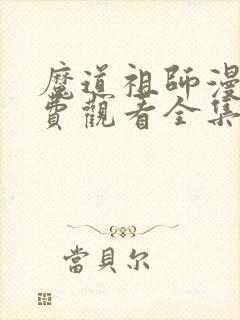 魔道祖師漫
費觀看全集
當貝尔